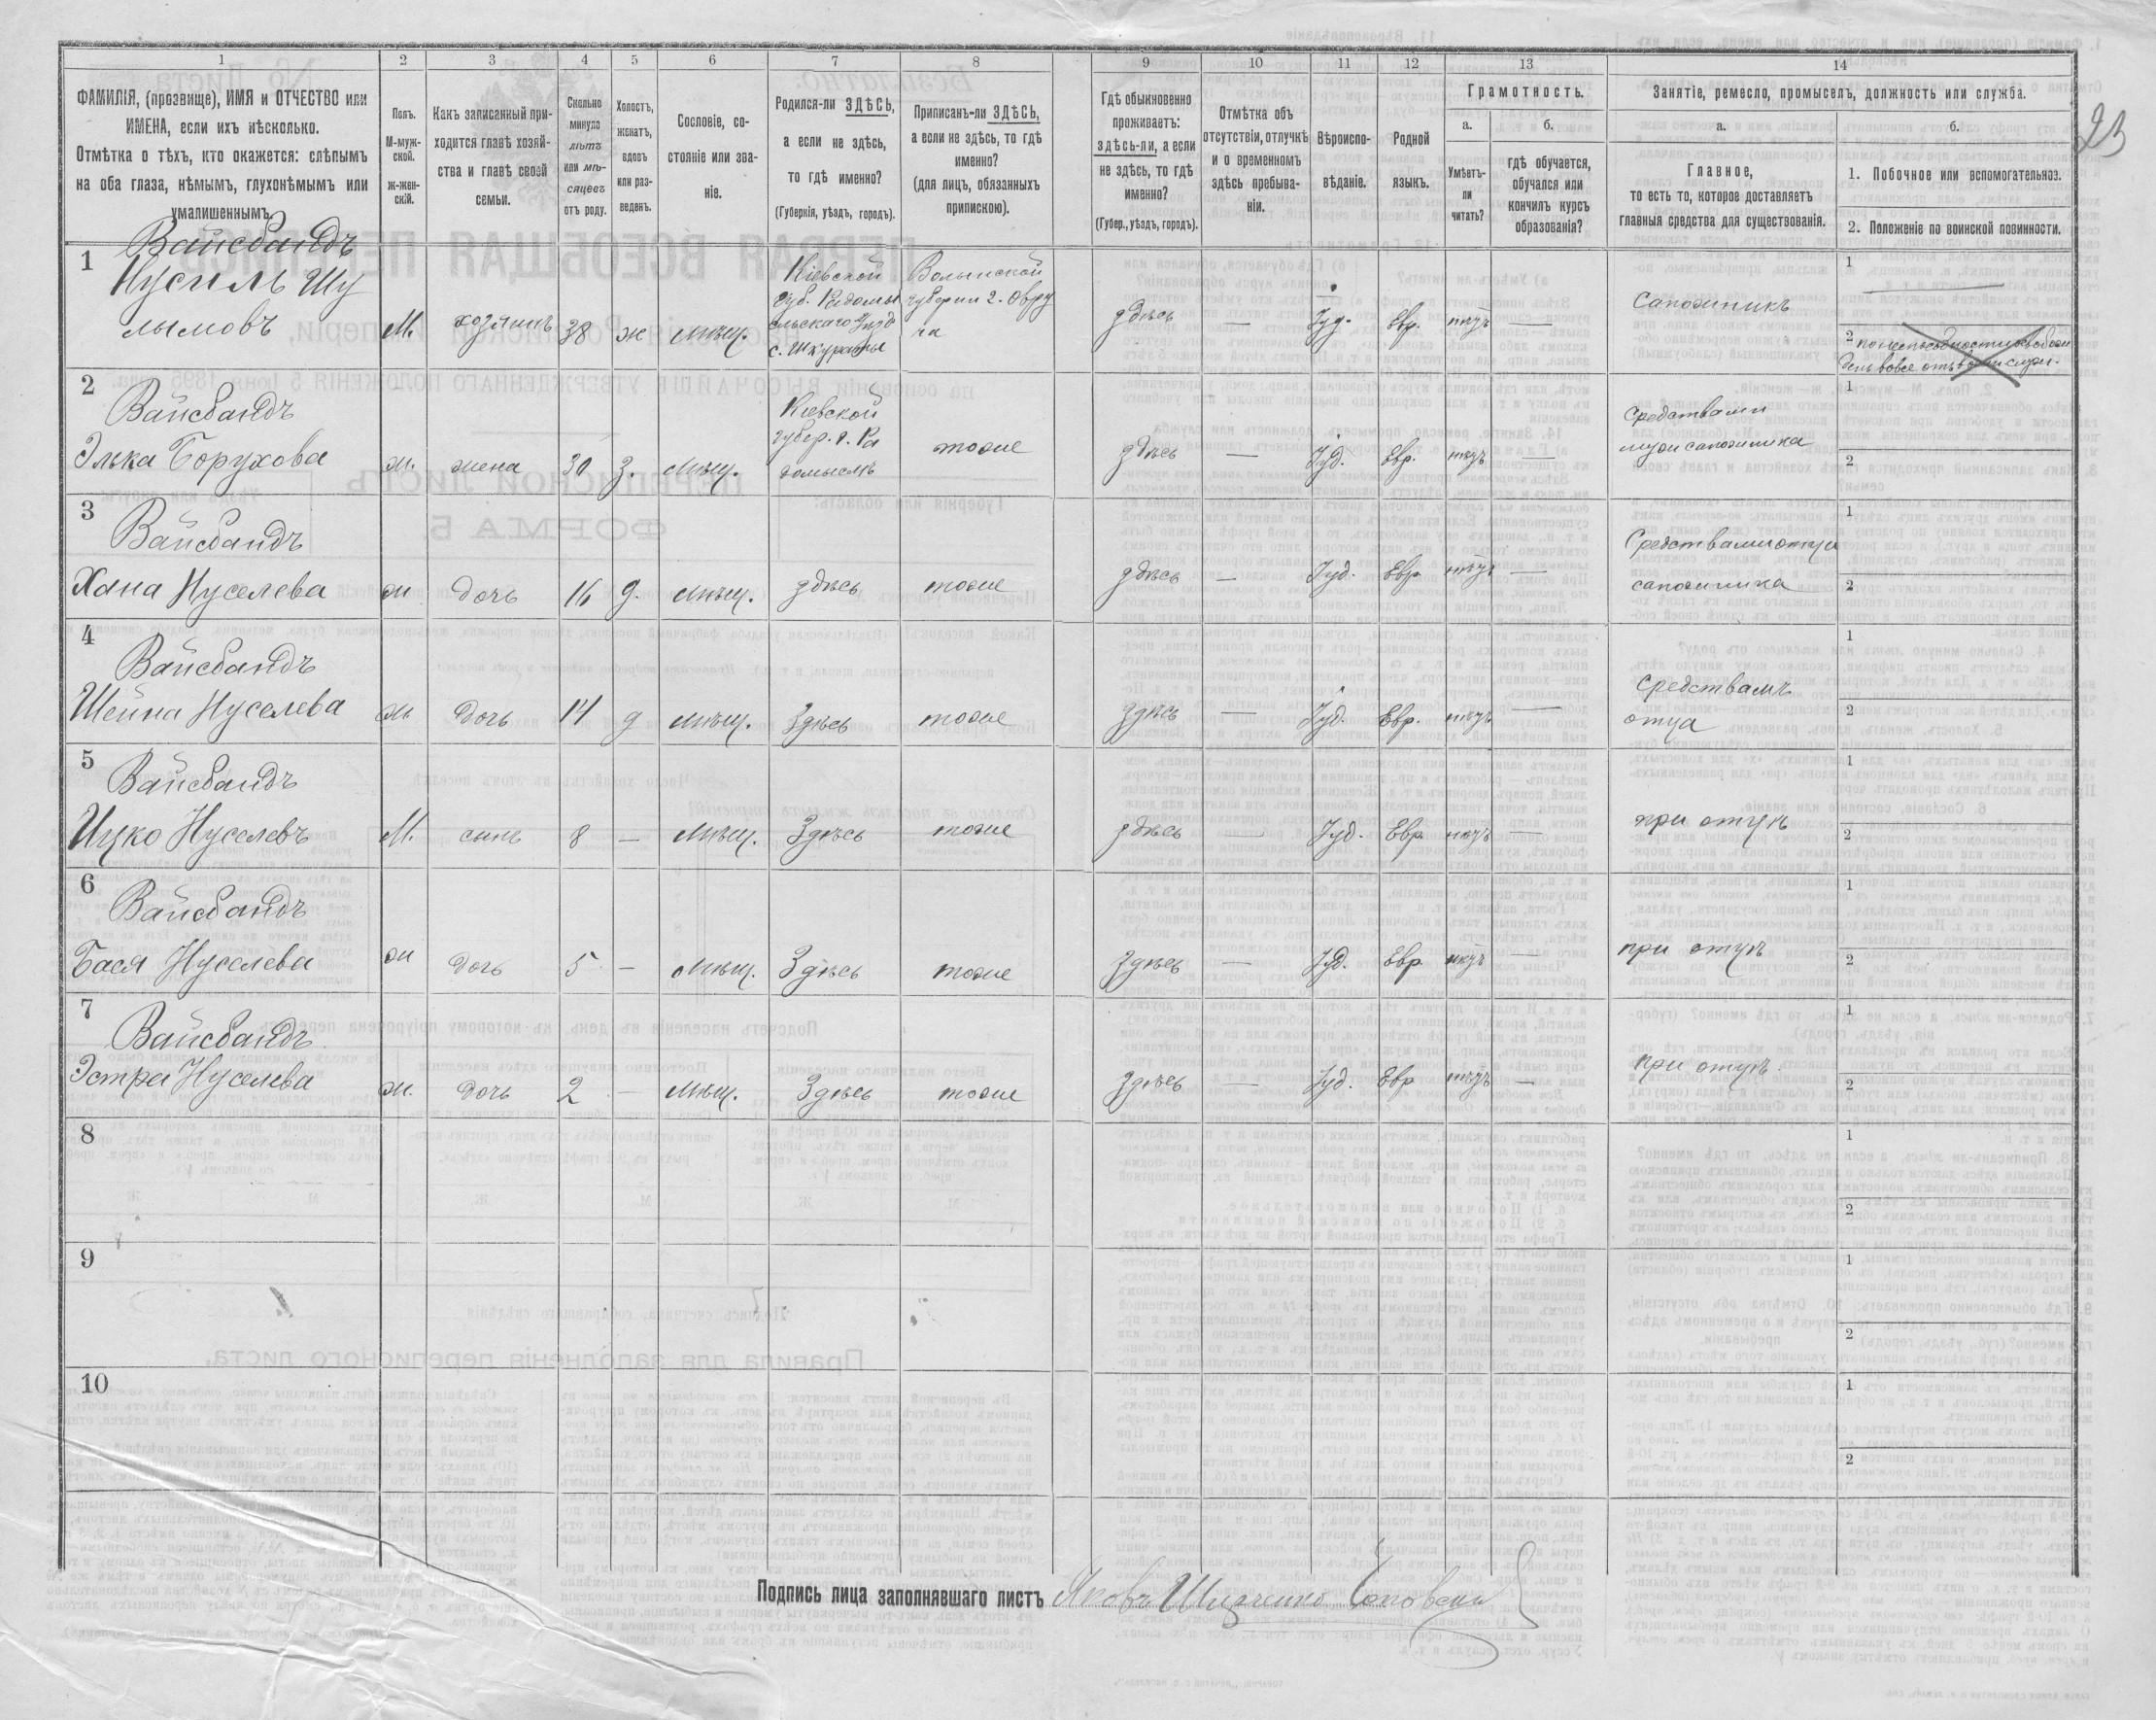 23
1 2 3 4 5 6 7 8 9 10 11 12 13 14
ФАМИЛІЯ, (прозвище), ИМЯ и ОТЧЕСТВО или
ИМЕНА, если ихъ нѣсколько.
Отмѣтка о тѣхъ, кто окажется: слѣпымъ
на оба глаза, нѣмымъ, глухонѣмымъ или
умалишеннымъ.
Полъ.
М-муж-
ской.
ж-жен-
скій.
Какъ записанный при-
ходится главѣ хозяй-
ства и главѣ своей
семьи.
Сколько
минуло
лѣтъ
или мѣ-
сяцевъ
отъ роду.
Холостъ,
женатъ,
вдовъ
или раз-
веденъ.
Сословіе, со-
стояніе или зва-
ніе.
Родился-ли ЗДѢСЬ,
а если не здѣсь,
то гдѣ именно?
(Губернія, уѣздъ, городъ).
Приписанъ-ли ЗДѢСЬ,
а если не здѣсь, то гдѣ
именно?
(для лицъ, обязанныхъ
припискою).
Гдѣ обыкновенно
проживаетъ:
здѣсь-ли, а если
не здѣсь, то гдѣ
именно?
(Губер., уѣздъ, городъ).
Отмѣтка объ
отсутствіи, отлучкѣ
и о временномъ
здѣсь пребыва-
ніи.
Вѣроиспо-
вѣданіе.
Родной
языкъ.
Грамотность.
а.
Умѣетъ-
ли
читать?
б.
гдѣ обучается,
обучался или
кончилъ курсъ
образованія?
Занятіе, ремесло, промыселъ, должность или служба.
а.
Главное,
то есть то, которое доставляетъ
главныя средства для существованія.
б.
1. Побочное или вспомогательное.
2. Положеніе по воинской повинности.
1
Вайсбандъ
Нусиль Шу
лымовъ
М.
хозяинъ
38
ж
мѣщ.
Кіевской
Губ. Радомы
сльскаго Уѣзд
с. Шкураты
Волынской
губерніи г. Овру
ча
здѣсь
—
Іуд.
Евр.
нѣтъ
—
Сапожникъ
1
2
2
Вайсбандъ
Элька Борухова
ж.
жена
30
з.
мѣщ.
Кіевской
губер. г. Ра
домыслѣ
тоже
здѣсь
—
Іуд.
Евр.
нѣтъ
Средствами
мужа сапожника
1
2
3
Вайсбандъ
Хана Нуселева
ж
дочь
16
д.
мѣщ.
здѣсь
тоже
здѣсь
—
Іуд.
Евр
нѣтъ
—
Средствами отца
сапожника
1
2
4
Вайсбандъ
Шейна Нуселева
ж
дочь
14
д
мѣщ.
Здѣсь
тоже
здѣсь
—
Іуд.
Евр.
нѣтъ
—
Средствамъ
отца
1
2
5
Вайсбандъ
Ицко Нуселевъ
М.
сынъ
8
—
мѣщ.
Здѣсь
тоже
здѣсь
—
Іуд.
Евр.
нѣтъ
—
при отцѣ
1
2
6
Вайсбандъ
Бася Нуселева
ж
дочь
5
—
мѣщ.
Здѣсь
тоже
здѣсь
—
Іуд.
Евр
нѣтъ
—
при отцѣ
1
2
7
Вайсбандъ
Эстра Нуселева
ж.
дочь
2
—
мѣщ.
Здѣсь
тоже
здѣсь
—
Іуд.
Евр
нѣтъ
—
при отцѣ
1
2
8
1
2
9
1
2
10
1
2
Подпись лица заполнявшаго листъ Яковъ